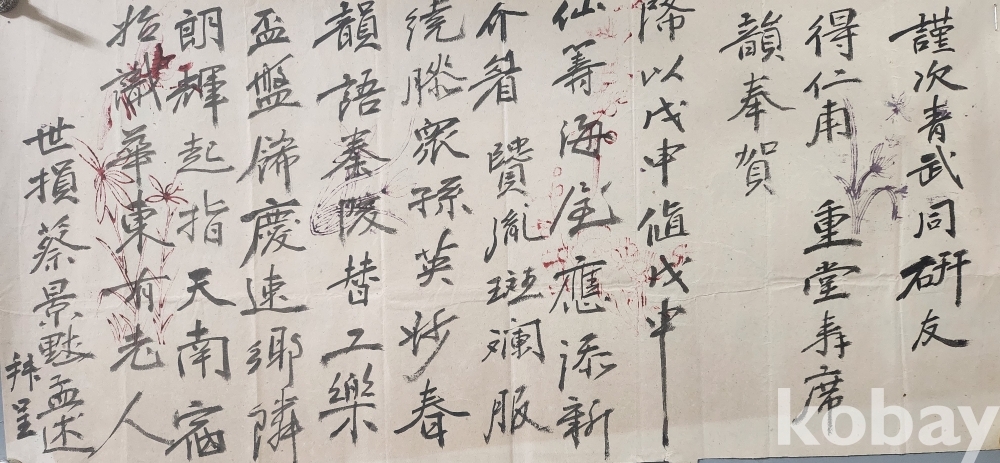 謹次青武同研友
得仁甫 重堂壽席
韻奉賀
降以戊申值戊申
仙籌海屋應添新
介眉賢胤斑斓服
繞膝衆孫英妙春
韻語秦陵替工樂
盃盤餙慶速鄉隣
朗輝起指天南宿
始識華東有老人
世損蔡景 孟述
拜呈
kobay